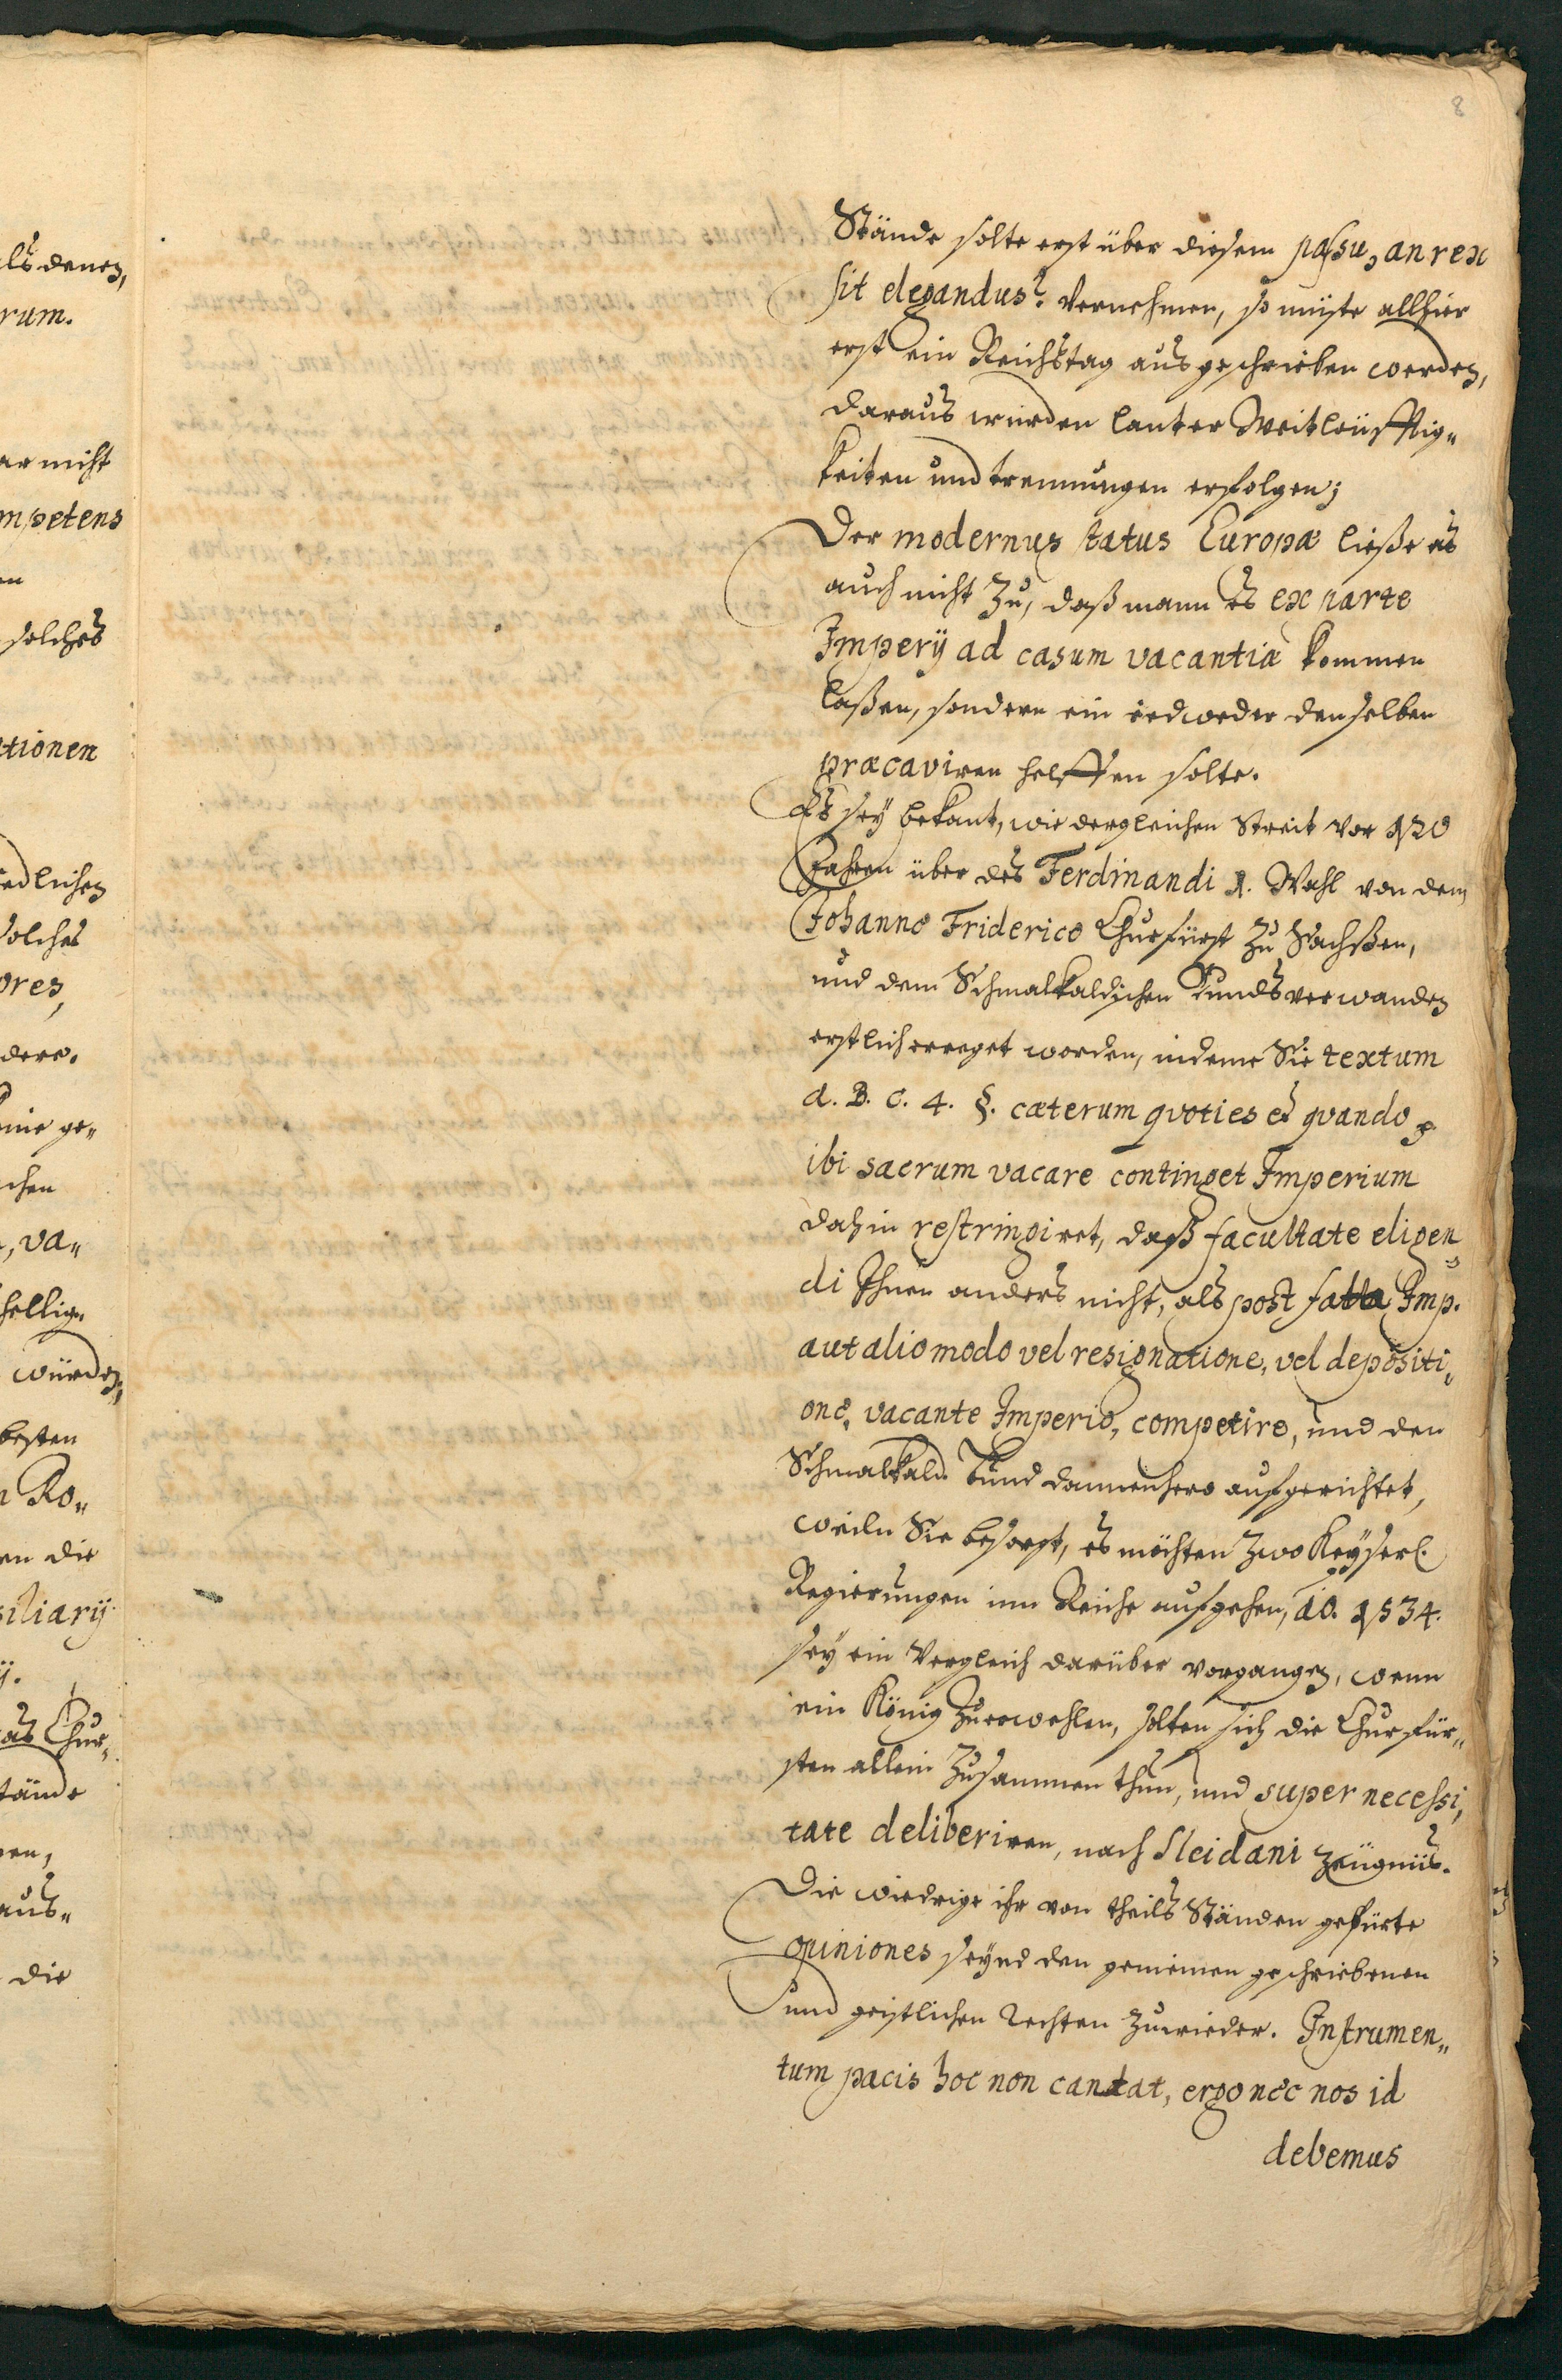 8
Stände solte erst über diesem passu, an rex
sit elegandus? vernehmen, so müste allhier
erst ein Reichstag ausgeschrieben werden,
daraus würden lauter Weitleüfftig„
keiten und trennungen erfolgen;
Der modernus status Europæ ließe es
auch nicht zu, daß mann es ex parte
Imperÿ ad casum vacantiæ kommen
laßen, sondern ein iedweder denselben
præcaviren helffen solte.
Es seÿ bekant, wie dergleichen Streit vor 120
Jahren über des Ferdinandi 1. Wahl von dem
Johanne Friderico Churfürst zu Sachßen,
und dem Schmalkaldischen Bundsverwanden
erstlich erreget worden, indeme Sie textum
a. B. c. 4. §. cæterum qvoties et qvando
ibi sacrum vacare continget Imperium
dahin restringiret, daß facultate eligen„
di Ihnen anders nicht, als post fata Imp.
aut alio modo vel resignatione, vel depositi„
one, vacante Imperio, competire, und den
Schmalkald. Bund dannenhero aufgerichtet,
weiln Sie besorgt, es möchten zwo Keÿserl.
Regierungen im Reiche aufgehen, ao. 1534.
seÿ ein Vergleich darüber vorgangen, wenn
ein König zuerwehlen, solten sich die Churfür„
sten allein zusammen thun, und super necessi„
tate deliberiren, nach Sleidani zeügnüs.
Die wiedrige ihr von theils Ständen gefürte
opiniones seÿnd den gemeinen geschriebenen
und geistlichen Rechten zuwieder. Instrumen„
tum pacis hoc non cantat, ergo nec nos id
debemus